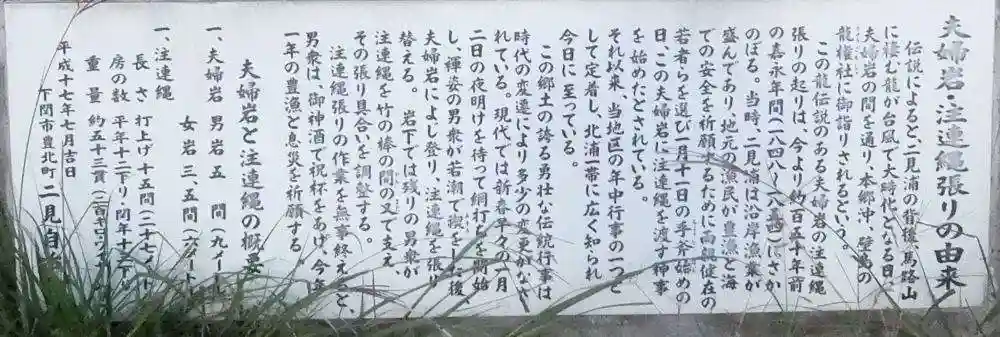 夫婦岩注連縄張りの由来
伝説によると、二見浦の背後、馬路山
に棲む龍が台風で大時化となる日、
夫婦岩の間を通り、本郷沖、壁島の
龍権社に御詣りされるという。
この龍伝説のある夫婦岩の注連縄
張りの起りは、今より約百五十年前
の嘉永年間(一八四八〜一八五四)にさか
のぼる。当時、二見浦は沿岸漁業が
盛んであり、地元の漁民が豊漁と海
での安全を祈願するために両親健在の
若者らを選び一月十一日の手斧始めの
日、この夫婦岩に注連縄を渡す神事
を始めたとされている。
それ以来、当地区の年中行事の一つと
して定着し、北浦一帯に広く知られ
今日に至っている。
この郷土の誇る勇壮な伝統行事は
時代の変遷により多少の変更がなさ
れている。現代では新春早々の一月
二日の夜明けを待って綱打ちを開始
し、褌姿の男衆が若潮で禊をした後
夫婦岩によじ登り、注連縄を張り
替える。岩下では残りの男衆が
注連縄を竹の棒の間の叉で支え
その張り具合いを調整する。
注連縄張りの作業を無事終えると、
男衆は、御神酒で祝杯をあげ、今年
一年の豊漁と息災を祈願する
夫婦岩と注連縄の概要
一、夫婦岩 男岩 五 間(九メートル
女岩 三、五間(六メートル
一、注連縄
長 さ 打上げ十五間(二十七メート
房の数 平年十二下り・閏年十三下り
重 量 約五十三貫(二百キログラム
平成十七年七月吉日
下関市豊北町 二見自治